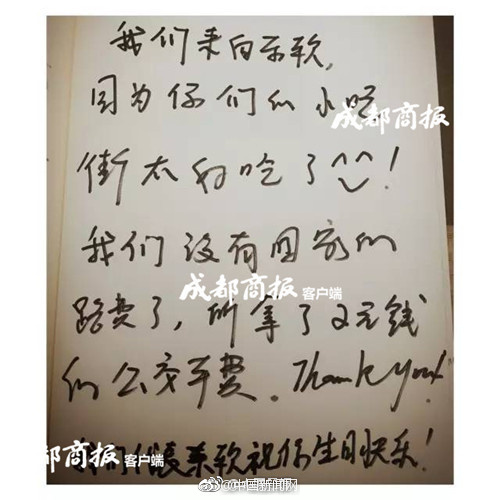 我们来自东软,
因为你们的小吃
成都商报
街太好吃了^^!
我们没有回家的
成都商报客户端
路费了,所拿了2元钱
的公交车费。Thank you!
我们代表东软祝你生日快乐!
成都商报客户端
@中国新闻网